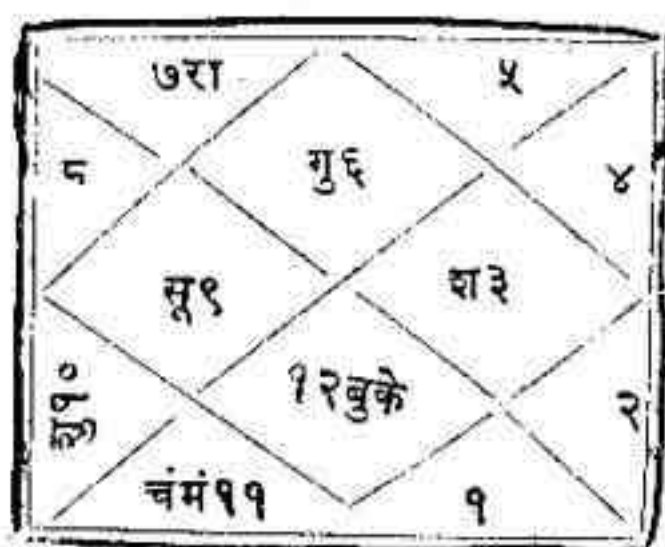 ७रा
५
८
गु६
४
सू९
श३
शु१०
१२बुके
२
चंमं११
१